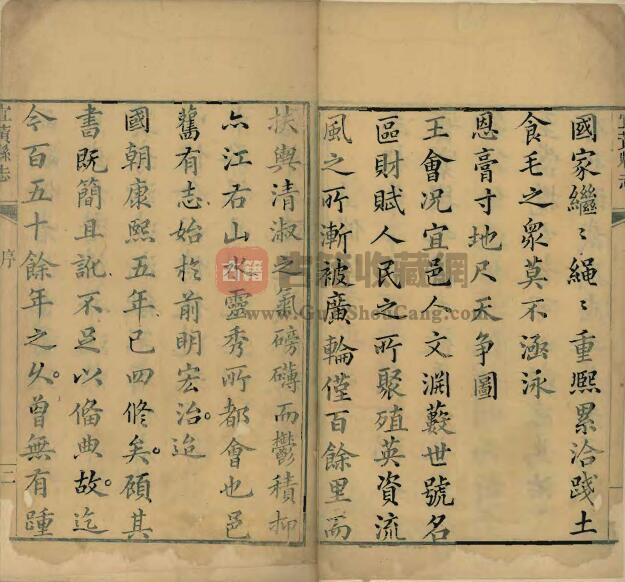 國家繼〻繩〻重熙累洽踐土
食毛之衆莫不涵泳
恩膏寸地尺天爭圖
王會況宜邑人文淵藪世號名
區財賦人民之所聚殖英資流
風之所漸被廣輪僅百餘里而
扶輿清淑之氣磅礴而鬱積抑
亦江右山水靈秀所都會也邑
舊有志始於前明宏治。迨
國朝康熙五年已四修矣。顧其
書既簡且訛不足以俻典故。迄
今百五十餘年之久。曾無有踵
宜黃縣志
序
二
古籍
古籍收藏網
www.GuJiShouCang.com